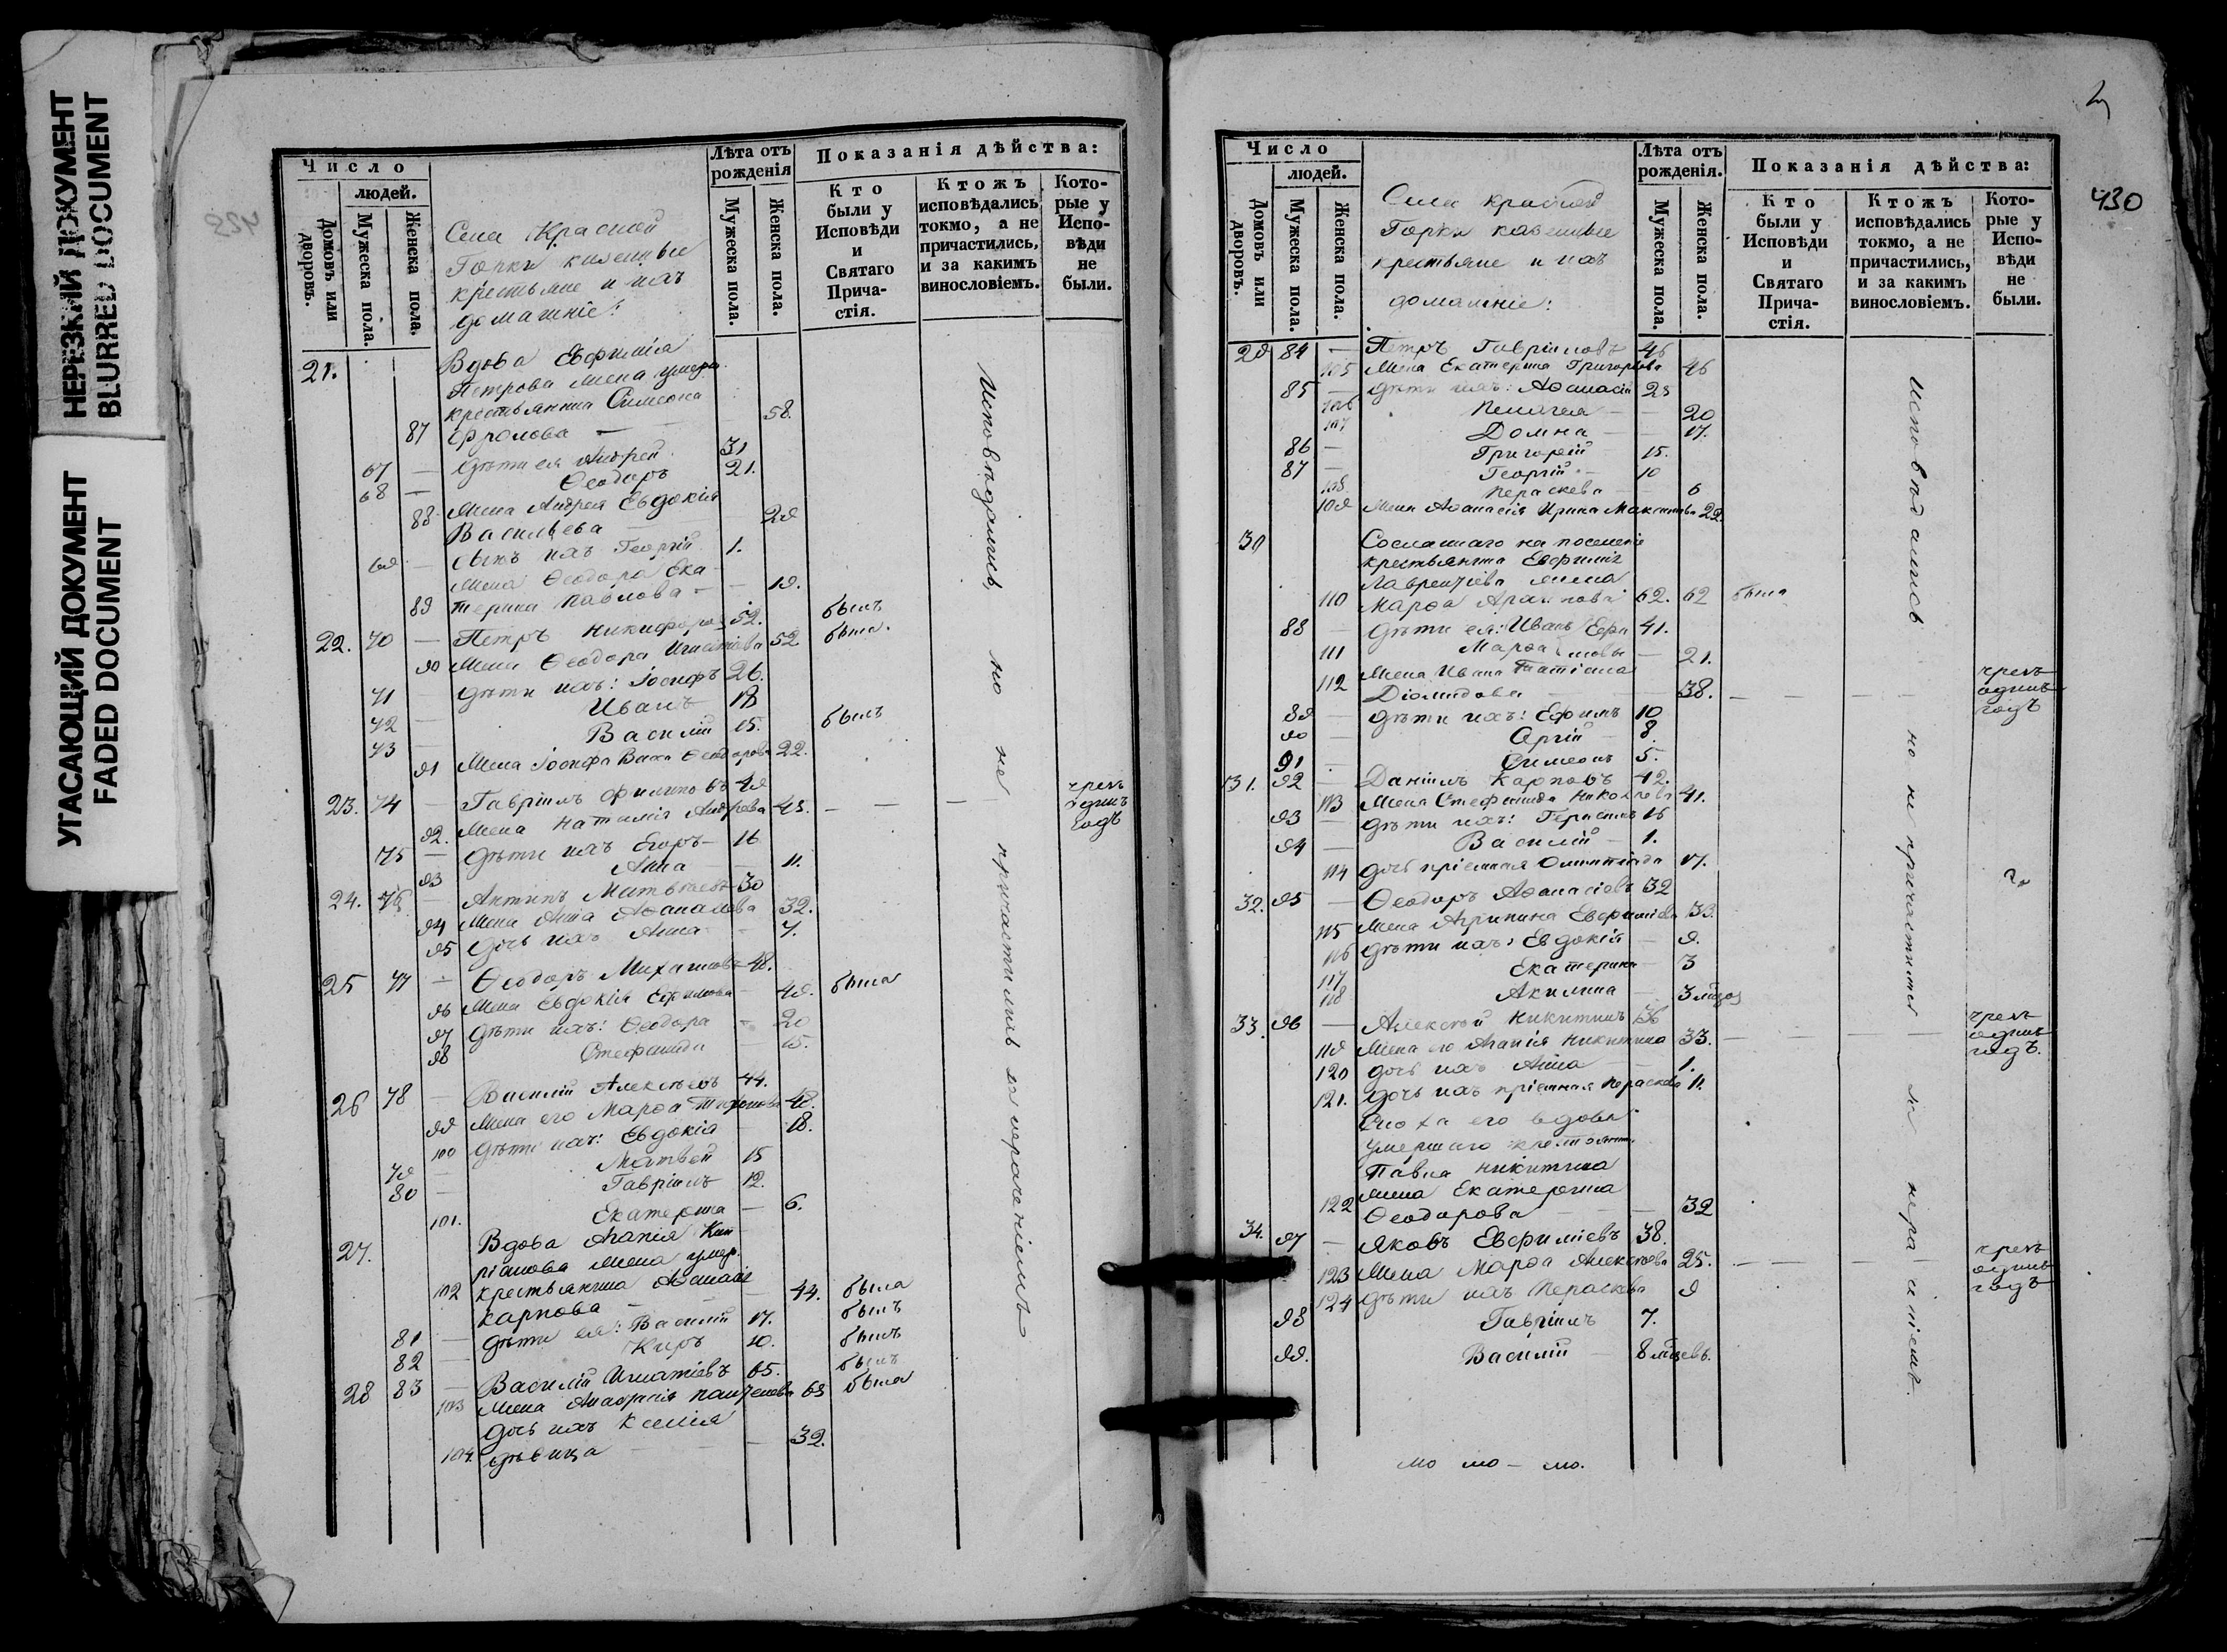 НЕРЕЗКИЙ ДОКУМЕНТ
BLURRED DOCUMENT
УГАСАЮЩИЙ ДОКУМЕНТ
FADED DOCUMENT
Число
людей.
Домовъ или дворовъ.
Мужеска пола.
Женска пола.
Села Красной
Горки казенные
крестьяне и ихъ
домашніе:
Лѣта отъ рожденія
Мужеска пола.
Женска пола.
Показанія дѣйства:
Кто были у Исповѣди и Святаго Причастія.
Ктожъ исповѣдались токмо, а не причастились, и за какимъ винословіемъ.
Которые у Исповѣди не были.
21. Вдова Евфимія
Петрова жена умерш.
крестьянина Симеона
87 Фролова — 58.
67 — Дѣти ея Андрей 31
68 — Ѳеодоръ 21.
Жена Андрея Евдокія
88 Васильева — 29
69 — Сынъ ихъ Георгій 1.
Жена Ѳеодора Ека-
89 терина Павлова — 19.
22. 70 — Петръ Никифоровъ 52. былъ
90 Жена Ѳеодора Игнатіева 52 была.
71 — Дѣти ихъ: Іосифъ 26.
72 — Иванъ 18
73 — Василій 15. былъ
91 Жена Іосифа Васса Ѳеодорова 22.
23. 74 — Гавріилъ Филиповъ 49
92. Жена Наталія Андреева 48. — — — чрезъ одинъ годъ
75 — Дѣти ихъ Егоръ — 16
93 Анна — 11.
24. 76 — Антипъ Матвѣевъ 30
94 Жена Анна Аѳанасьева 32.
95 Дочь ихъ Анна — 7.
25 77 — Ѳеодоръ Михаиловъ 48.
96 Жена Евдокія Ефимова — 49. была
97 Дѣти ихъ: Ѳеодора — 20
98 Стефанида — 15.
26 78 — Василій Алексѣевъ 44.
99 Жена его Марѳа Тихонова 48.
100 Дѣти ихъ: Евдокія 18.
79 — Матвей 15
80 — Гавріилъ 12.
101. Екатерина — 6.
27. Вдова Агапія Кип-
ріанова жена умер.
102 крестьянина Аѳанасія
Карпова — 44. была
81 — Дѣти ея: Василій 17. былъ
82 — Киръ 10. былъ
28 83 — Василій Игнатіевъ 65. былъ
103 Жена Анастасія Пантелеева 63 была
Дочь ихъ Ксенія
104. дѣвица — 32.
Исповѣдались, но не причастились за нерачениемъ
430
Число
людей.
Домовъ или дворовъ.
Мужеска пола.
Женска пола.
Села Красной
Горки казенные
крестьяне и ихъ
домашніе:
Лѣта отъ рожденія.
Мужеска пола.
Женска пола.
Показанія дѣйства:
Кто были у Исповѣди и Святаго Причастія.
Ктожъ исповѣдались токмо, а не причастились, и за какимъ винословіемъ.
Которые у Исповѣди не были.
29 84 — Петръ Гавріиловъ 46
105 Жена Екатерина Григорьева 46
85 — Дѣти ихъ: Аѳанасій 23
106 Пелагея — 20
107 Домна — 17.
86 — Григорій 15.
87 — Георгій — 10
108 Параскева — 6
109 Жена Аѳанасія Ирина Максимова 22.
30 Сосланнаго на поселеніе
крестьянина Евфимія
Лаврентіева жена
110 Марѳа 62. 62 была
88 — Дѣти ея: Иванъ 41.
111 Марѳа — 21.
Жена Ивана Татіана
112 Діомидова 38. — — — чрезъ одинъ годъ
89 — Дѣти ихъ: Ефимъ 10
90 — Сергій — 8.
91 — Симеонъ 5.
31. 92 — Даніилъ Карповъ 42.
113 Жена Стефанида Николаева 41.
93 — Дѣти ихъ: Герасимъ 16
94 — Василій — 1.
114 Дочь пріемная Олимпіада 17.
32. 95 — Ѳеодоръ Аѳанасіевъ 32
115 Жена Агрипина Евфиміева 33.
116 Дѣти ихъ: Евдокія — 9.
117 Екатерина — 3
118 Акилина — 3
33. 96 — Алексѣй Никитинъ 36
119 Жена его Агапія Никитина 33. — — — чрезъ одинъ годъ.
120 Дочь ихъ Анна 1.
121. Дочь ихъ пріемная Параскева 11.
Сноха его вдова
умершаго крестьянина
Павла Никитина
жена Екатерина
122 Ѳеодорова — 32
34. 97 — Яковъ Евфиміевъ 38.
123 Жена Марѳа Алексѣева 25. — — — чрезъ одинъ годъ
124 Дѣти ихъ Параскева 9
98 Гавріилъ 7.
99. Василій — 8 мѣсяцевъ.
Исповѣдались но не причастились за нерачениемъ.